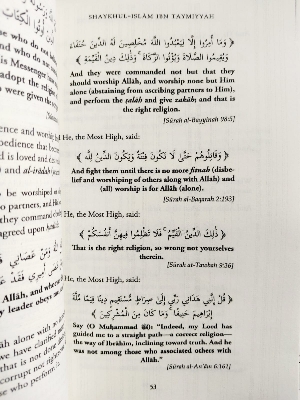 أُوتُوا الْكِتَابَ
se who do not
and who do not
his Messenger
adopt the religion
were given the
ence and
bedience that
is loved and
al-irādah
o be worshiped
o partners, and
agreed upon
وَمَنْ عَصَانِي
فَقَدْ
Allāh, and whoever
y leader obeys
lāh alone with
we have clarified
that is not done
corrupt not right
se who perform it
SHAYKHUL-ISLĀM IBN TAYMIYYAH
﴿ وَمَا أُمِرُوا إِلَّا لِيَعْبُدُوا اللَّهَ مُخْلِصِينَ لَهُ الدِّينَ حُنَفَاءَ
وَيُقِيمُوا الصَّلَاةَ وَيُؤْتُوا الزَّكَاةَ وَذَلِكَ دِينُ الْقَيِّمَةِ ﴾
And they were commanded not but that they
should worship Allāh, and worship none but Him
alone (abstaining from ascribing partners to Him),
and perform the salāh and give zakāh; and that is
the right religion.
[Sūrah al-Bayyinah 98:5]
He, the Most High, said:
﴿ وَقَاتِلُوهُمْ حَتَّى لَا تَكُونَ فِتْنَةٌ وَيَكُونَ الدِّينُ لِلَّهِ ﴾
And fight them until there is no more fitnah (disbe-
lief and worshiping of others along with Allāh) and
(all) worship is for Allāh (alone).
[Sūrah al-Baqarah 2:193]
He, the Most High, said:
﴿ ذَلِكَ الدِّينُ الْقَيِّمُ فَلَا تَظْلِمُوا فِيهِنَّ أَنْفُسَكُمْ ﴾
That is the right religion, so wrong not yourselves
therein.
[Sūrah at-Tawbah 9:36]
He, the Most High, said:
﴿ قُلْ إِنَّنِي هَدَانِي رَبِّي إِلَى صِرَاطٍ مُسْتَقِيمٍ دِينًا قِيَمًا مِلَّةَ
إِبْرَاهِيمَ حَنِيفًا وَمَا كَانَ مِنَ الْمُشْرِكِينَ ﴾
Say (O Muḥammad ﷺ): "Indeed, my Lord has
guided me to a straight path—a correct religion—
the way of Ibrāhīm, inclining toward truth. And he
was not among those who associated others with
Allāh."
[Sūrah al-An'ām 6:161]
53